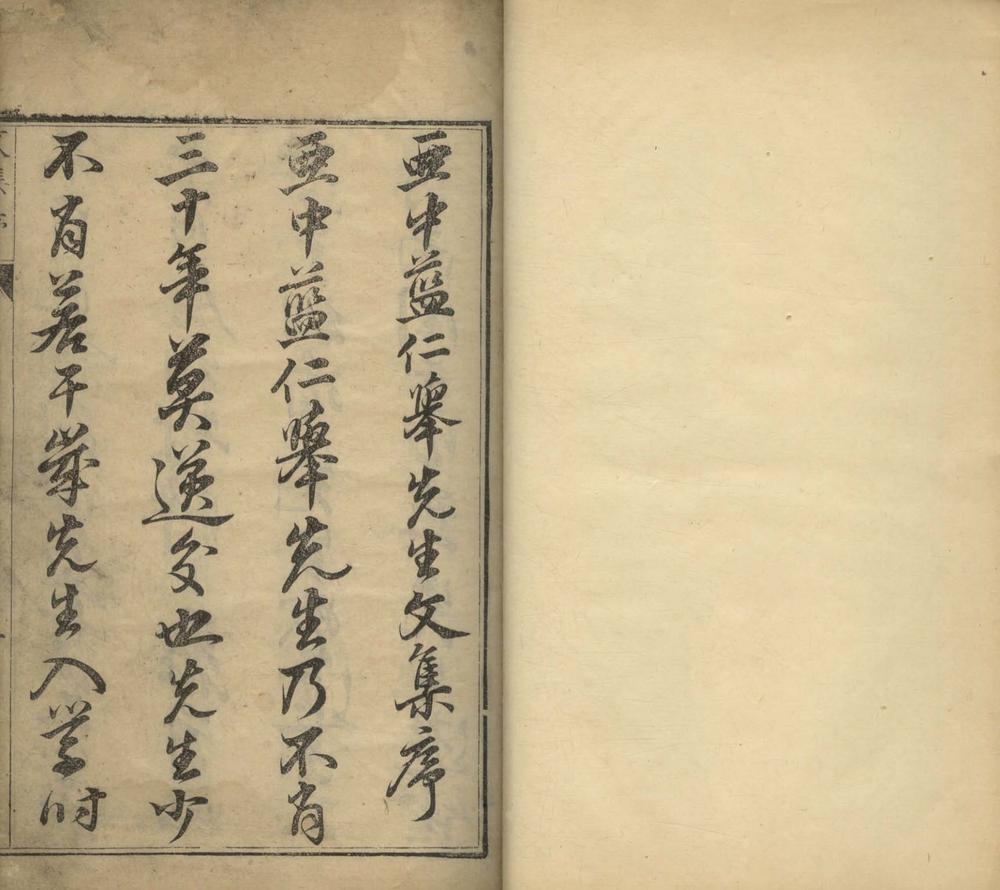 亞中藍仁臯先生文集序
亞中藍仁臯先生乃不肖
三十年莫逆交也先生少
不肖若干歲先生入學时